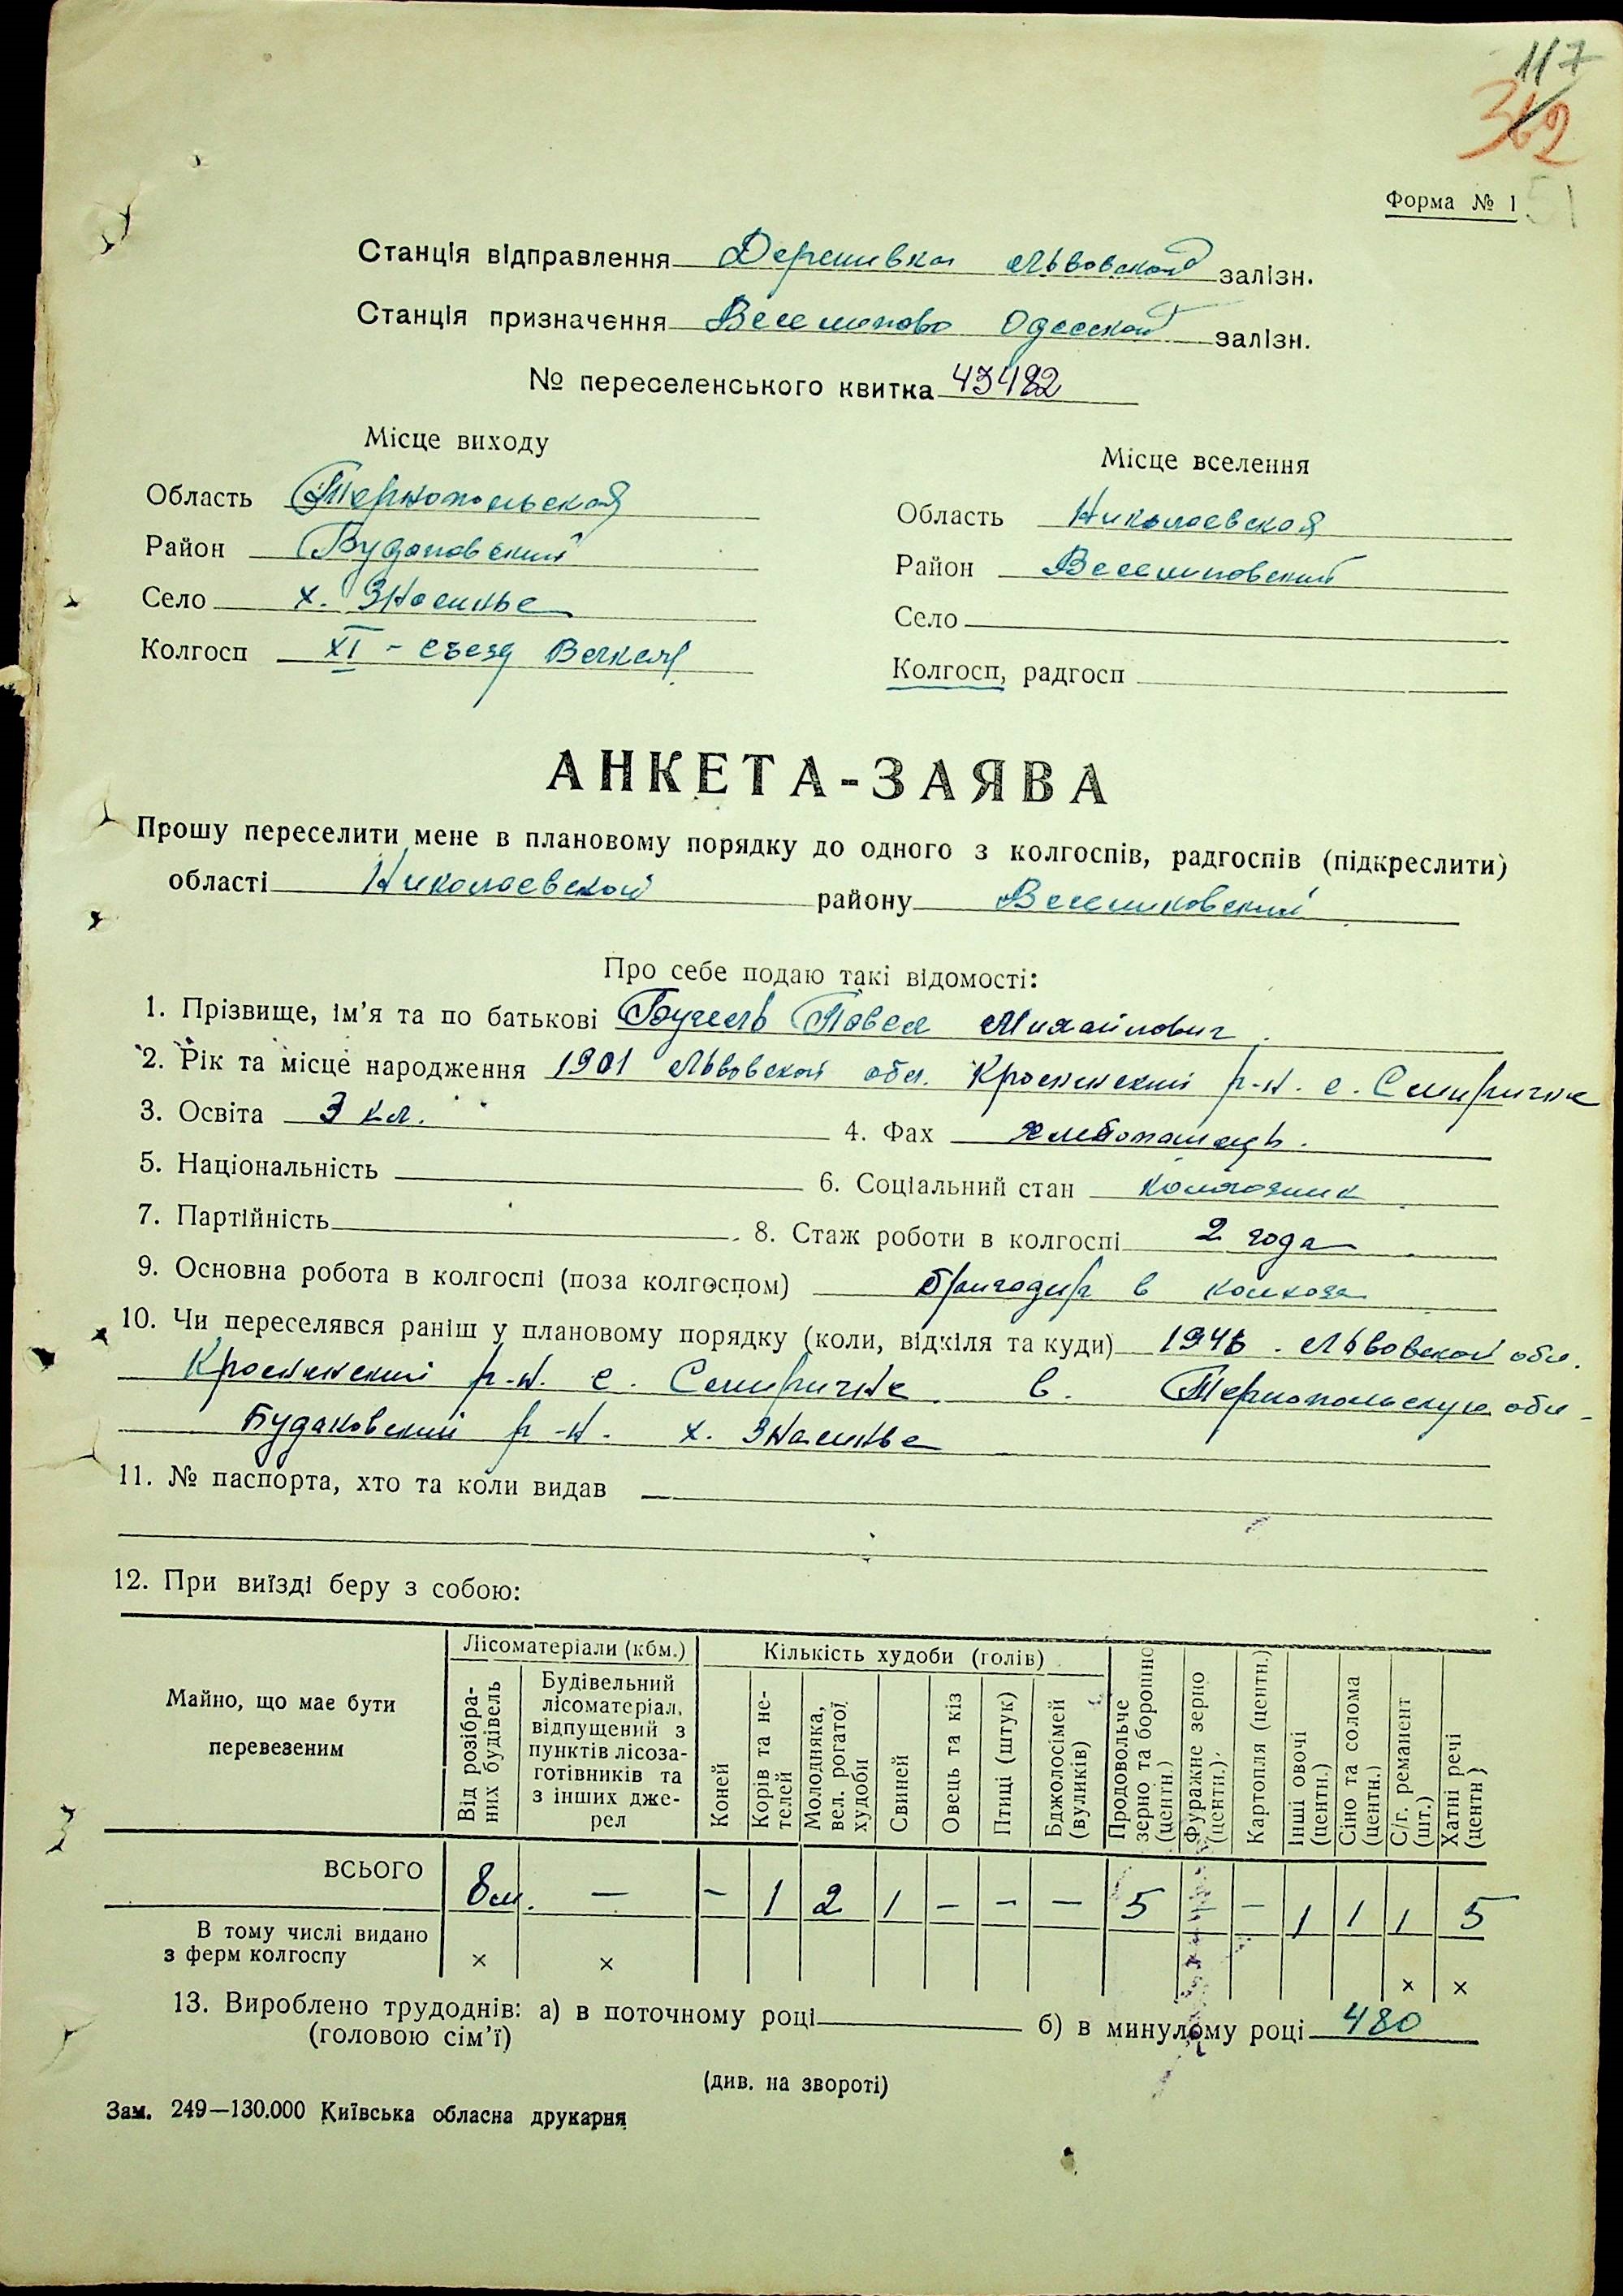 117
362
Форма № 1
51
Станція відправлення Деренивка Львовской залізн.
Станція призначення Веселиново Одесской залізн.
№ переселенського квитка 43482
Місце виходу
Місце вселення
Область Тернопольская
Область Николаевская
Район Будановский
Район Веселиновский
Село х. Знасинье
Село
Колгосп XI - съезд
Колгосп, радгосп
АНКЕТА-ЗАЯВА
Прошу переселити мене в плановому порядку до одного з колгоспів, радгоспів (підкреслити)
області Николаевской району Веселиновский
Про себе подаю такі відомості:
1. Прізвище, ім’я та по батькові Павел Михайлович
2. Рік та місце народження 1901 Львовской обл. р-н. с.
3. Освіта 3 кл. 4. Фах хлебопашец.
5. Національність 6. Соціальний стан колхозник
7. Партійність 8. Стаж роботи в колгоспі 2 года
9. Основна робота в колгоспі (поза колгоспом) бригадир в колхозе
10. Чи переселявся раніш у плановому порядку (коли, відкіля та куди) Львовской обл.
р-н. с. в. Тернопольскую обл-
Будановский р-н. х. Знасинье
11. № паспорта, хто та коли видав
12. При виїзді беру з собою:
Майно, що має бути перевезеним
Лісоматеріали (кбм.)
Кількість худоби (голів)
Від розібраних будівель
Будівельний
лісоматеріал,
відпущений з
пунктів лісоза-
готівників та
з інших дже-
рел
Коней
Корів та не-
телей
Молодняка,
вел. рогатої
худоби
Свиней
Овець та кіз
Птиці (штук)
Бджолосімей
(вуликів)
Продовольче
зерно та борошно
(центн.)
Фуражне зерно
(центн.)
Картопля (центн.)
Інші овочі
(центн.)
Сіно та солома
(центн.)
С/г. реманент
(шт.)
Хатні речі
(центн)
ВСЬОГО 8м. — – 1 2 1 – – — 5 – 1 1 1 5
В тому числі видано
з ферм колгоспу × × × ×
13. Вироблено трудоднів: а) в поточному році б) в минулому році 480
(головою сім’ї)
(див. на звороті)
Зам. 249—130.000 Київська обласна друкарня